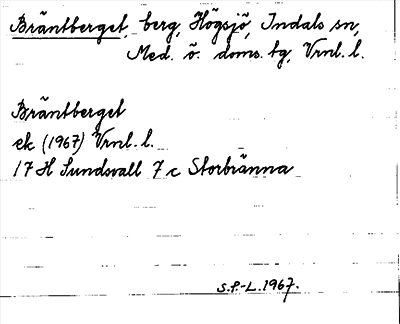 Bräntberget, berg, Högsjö, Indals sn,
Med. ö. doms. tg, Vrnl. l.
Bräntberget
ek (1967) Vrnl. l.
17 H Sundsvall 7 c Storbränna
S.P.-L. 1967.